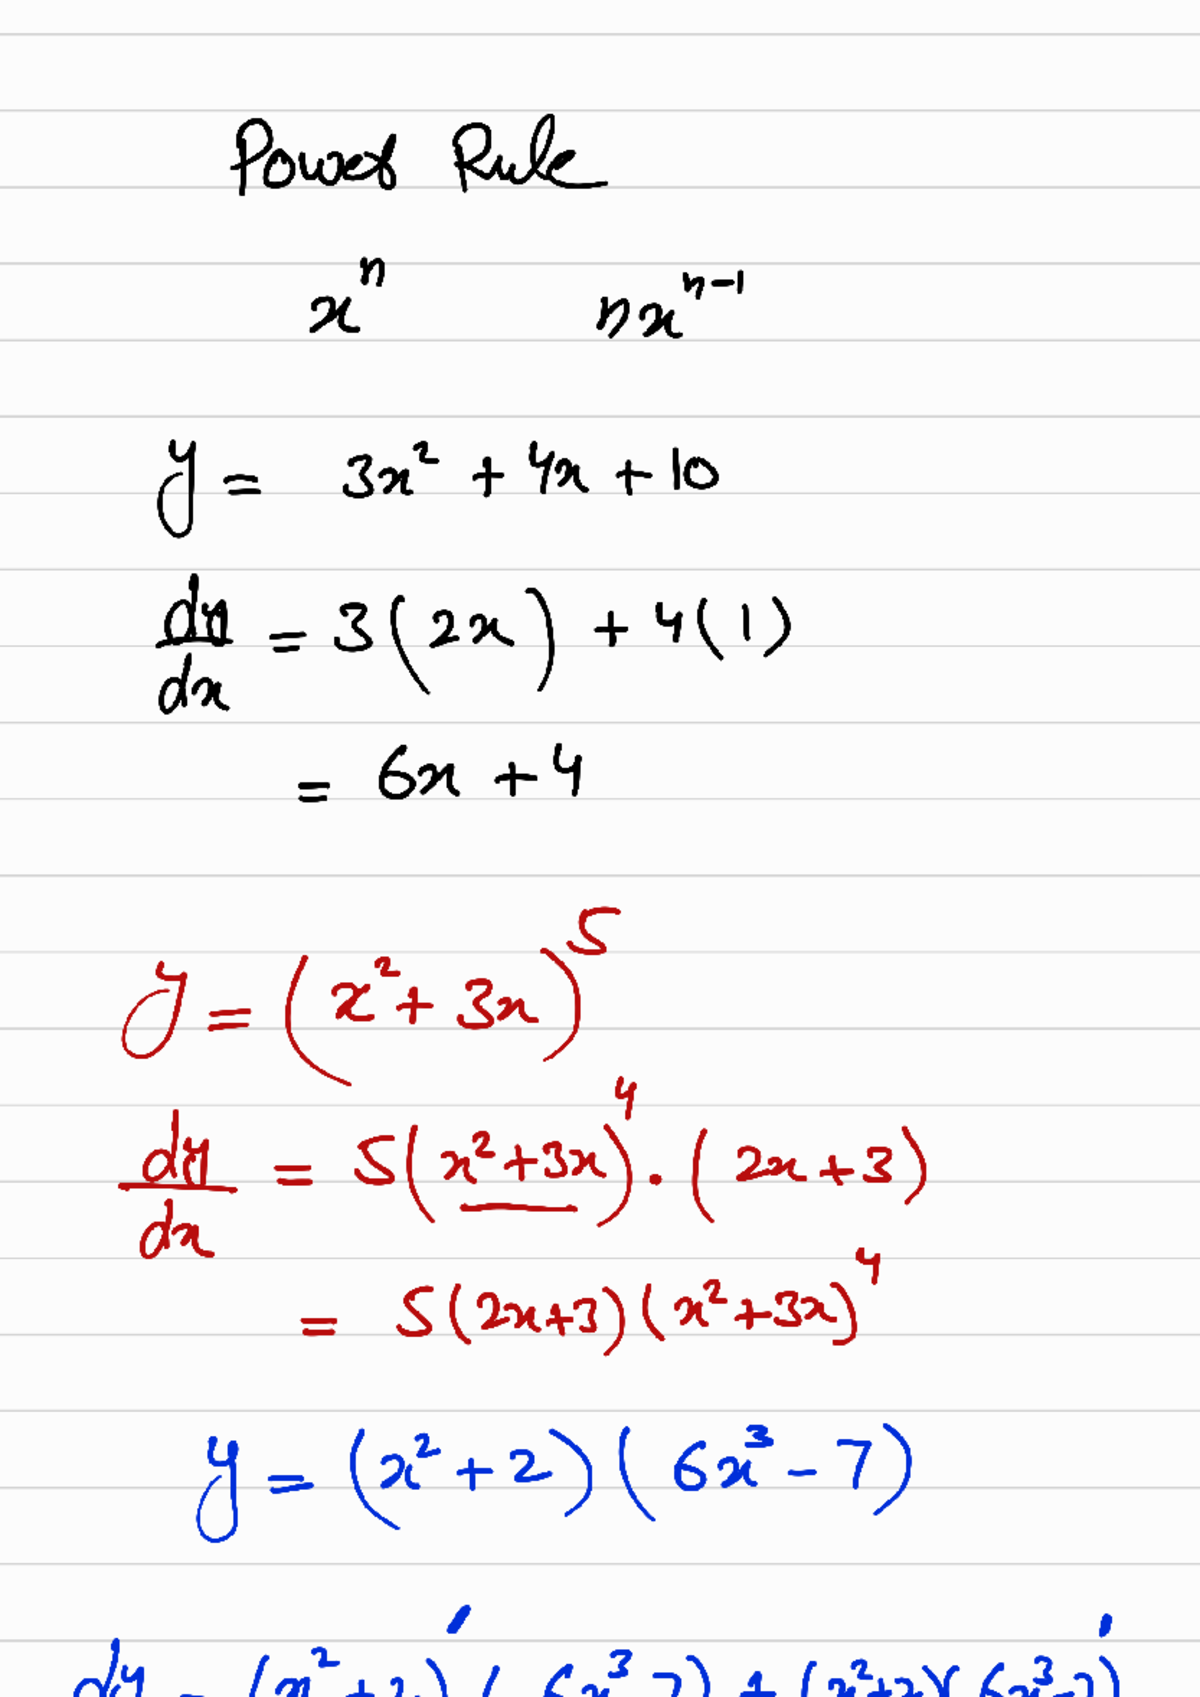 Power Rule
xⁿ nxⁿ⁻¹
y = 3x² + 4x + 10
dy/dx = 3(2x) + 4(1)
= 6x + 4
y = (x² + 3x)⁵
dy/dx = 5(x² + 3x)⁴ · (2x + 3)
= 5(2x+3)(x²+3x)⁴
y = (x² + 2)(6x³ - 7)
dy = (x²+2)′(6x³-7) + (x²+2)(6x³-7)′